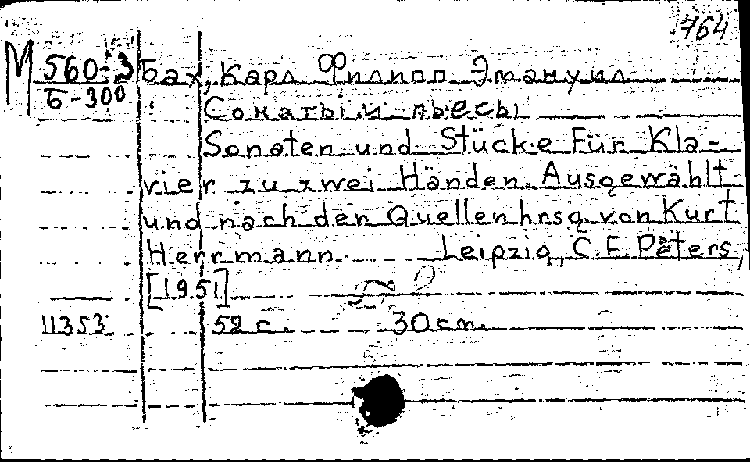 764
М 560-3 Бах, Карл Филипп Эмануил
Б-300
Сонаты и пьесы
Sonaten und Stücke Für Kla-
vier zu zwei Händen. Ausgewählt
und nach den Quellen hrsg. von Kurt
Herrmann. Leipzig, C. F. Peters,
[1951]
11353 52 с. 30 cm.